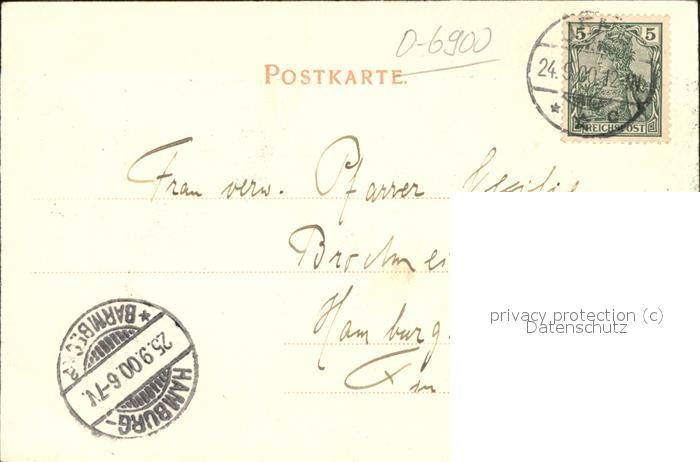 D-6900
POSTKARTE.
24.9.00.12-
5 5
REICHSPOST
Frau verw. Pfarrer
Hamburg.
privacy protection (c)
Datenschutz
* BARMBECK *
25.9.00.6-7V.
HAMBURG-